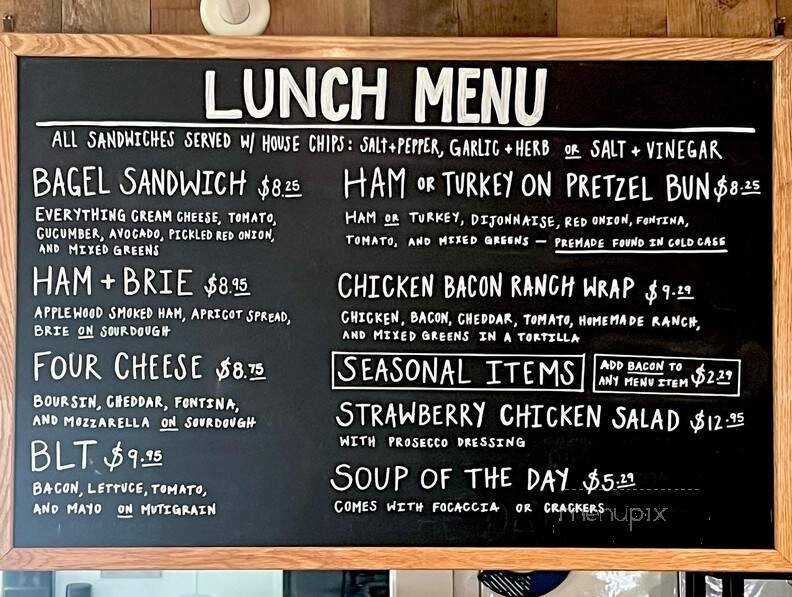 LUNCH MENU
ALL SANDWICHES SERVED W/ HOUSE CHIPS: SALT+PEPPER, GARLIC + HERB OR SALT + VINEGAR
BAGEL SANDWICH $8.25
EVERYTHING CREAM CHEESE, TOMATO,
CUCUMBER, AVOCADO, PICKLED RED ONION,
AND MIXED GREENS
HAM + BRIE $8.95
APPLEWOOD SMOKED HAM, APRICOT SPREAD,
BRIE ON SOURDOUGH
FOUR CHEESE $8.75
BOURSIN, CHEDDAR, FONTINA,
AND MOZZARELLA ON SOURDOUGH
BLT $9.95
BACON, LETTUCE, TOMATO,
AND MAYO ON MUTIGRAIN
HAM OR TURKEY ON PRETZEL BUN $8.25
HAM OR TURKEY, DIJONNAISE, RED ONION, FONTINA,
TOMATO, AND MIXED GREENS — PREMADE FOUND IN COLD CASE
CHICKEN BACON RANCH WRAP $9.29
CHICKEN, BACON, CHEDDAR, TOMATO, HOMEMADE RANCH,
AND MIXED GREENS IN A TORTILLA
SEASONAL ITEMS
ADD BACON TO
ANY MENU ITEM $2.29
STRAWBERRY CHICKEN SALAD $12.95
WITH PROSECCO DRESSING
SOUP OF THE DAY $5.29
COMES WITH FOCACCIA OR CRACKERS
menupix